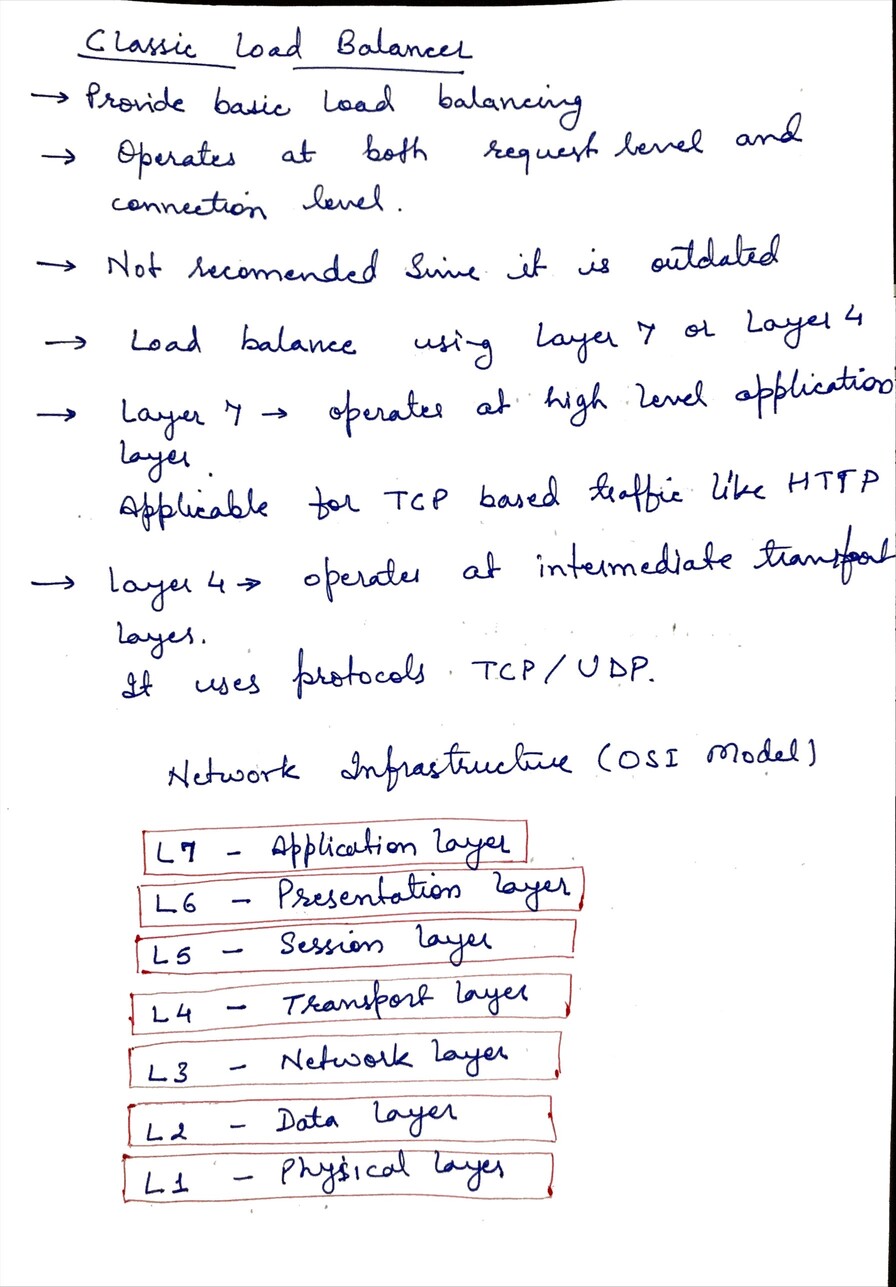 Classic Load Balancer
→ Provide basic Load balancing
→ Operates at both request level and
connection level.
→ Not recomended Sinve it is outdated
→ Load balance using Layer 7 or Layer 4
→ Layer 7 → operates at high level application
layer.
Applicable for TCP based traffic like HTTP
→ Layer 4 → operates at intermediate transport
layer.
It uses protocols TCP/UDP.
Network Infrastructure (OSI Model)
L7 - Application layer
L6 - Presentation layer
L5 - Session layer
L4 - Transport layer
L3 - Network layer
L2 - Data layer
L1 - Physical layer